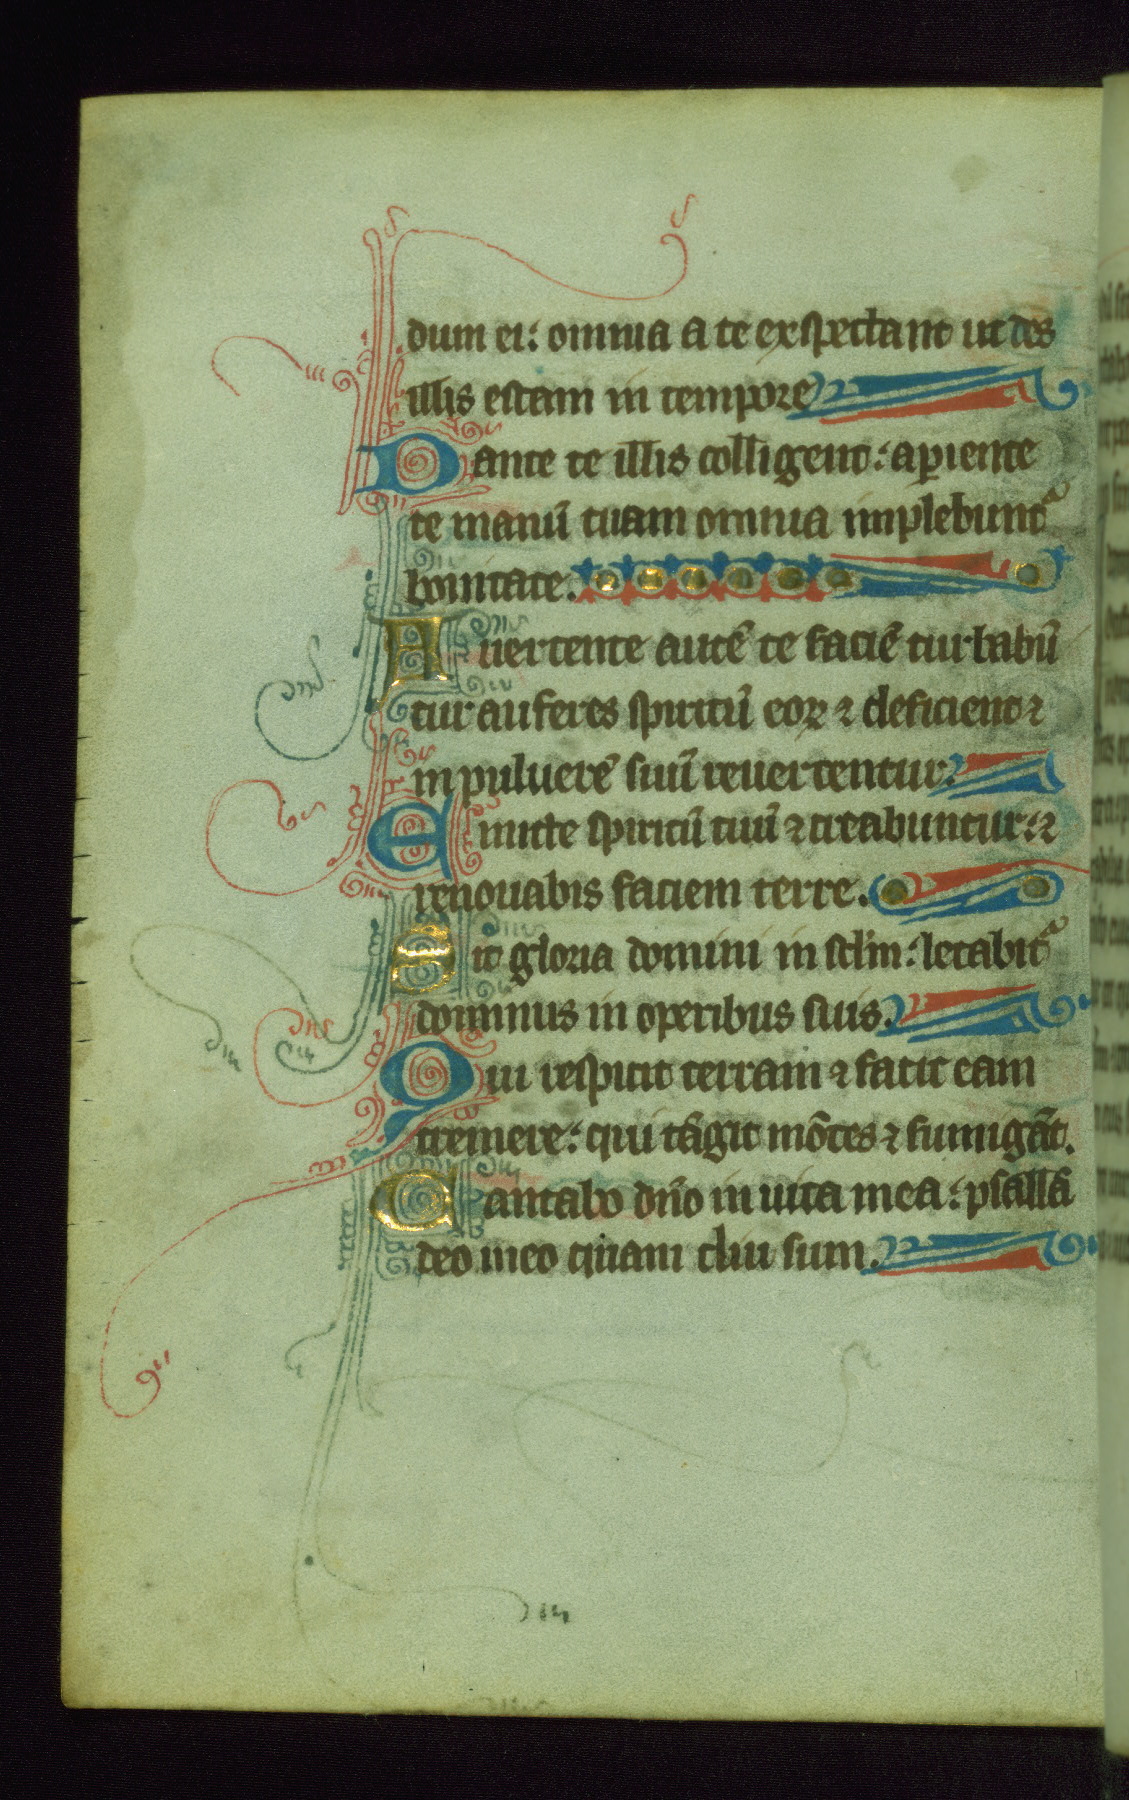 dum ei: omnia a te exspectant ut des
illis escam in tempore
Dante te illis colligent: aperiente
te manū tuam omnia implebunt᷑
bonitate.
Auertente autē te faciē turbabū
tur auferes spiritū eoꝝ ⁊ deficient ⁊
in puluerē suū reuertentur.
Emitte spiritū tuū ⁊ creabuntur: ⁊
renouabis faciem terre.
Sit gloria domini in sc̄lm: letabit᷑
dominus in operibus suis.
Qui respicit terram ⁊ facit eam
tremere: qui tāgit mōtes ⁊ fumigāt.
Cantabo dn̄o in uita mea: psallā
deo meo quam diu sum.